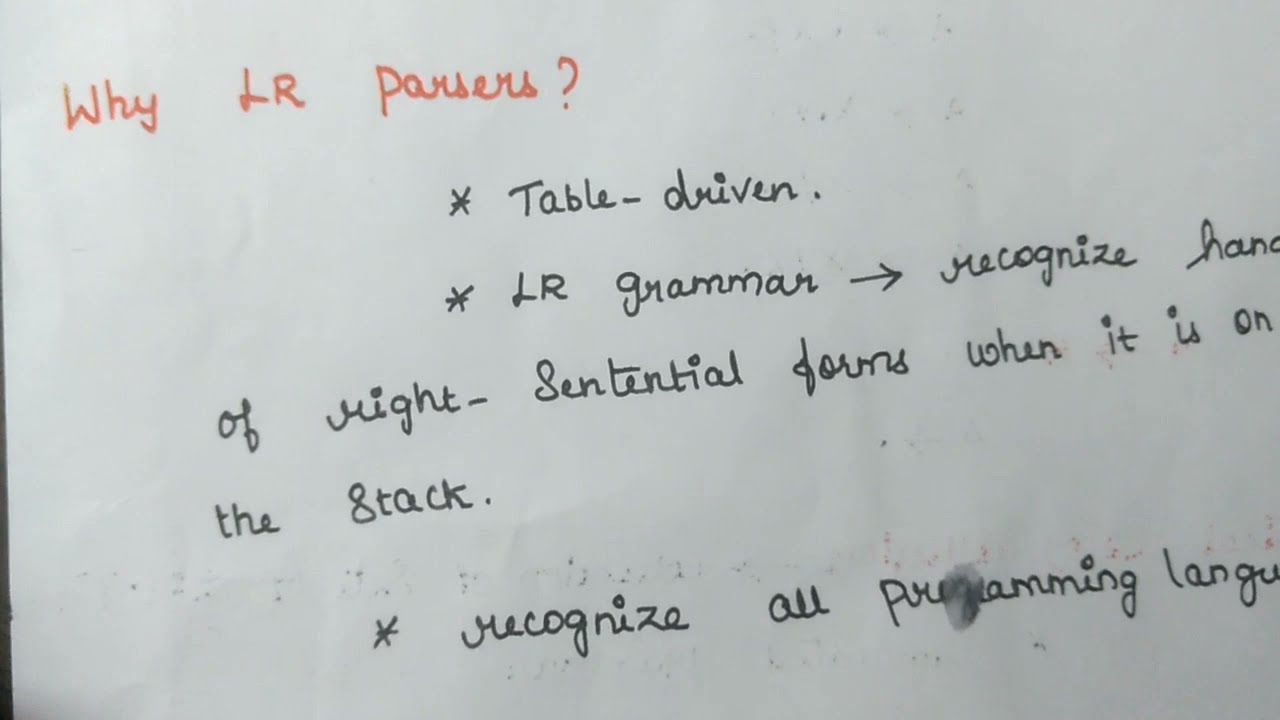 Why LR Parsers?
* Table-driven.
* LR grammar → recognize hand
of right-Sentential forms when it is on
the Stack.
* recognize all programming langu